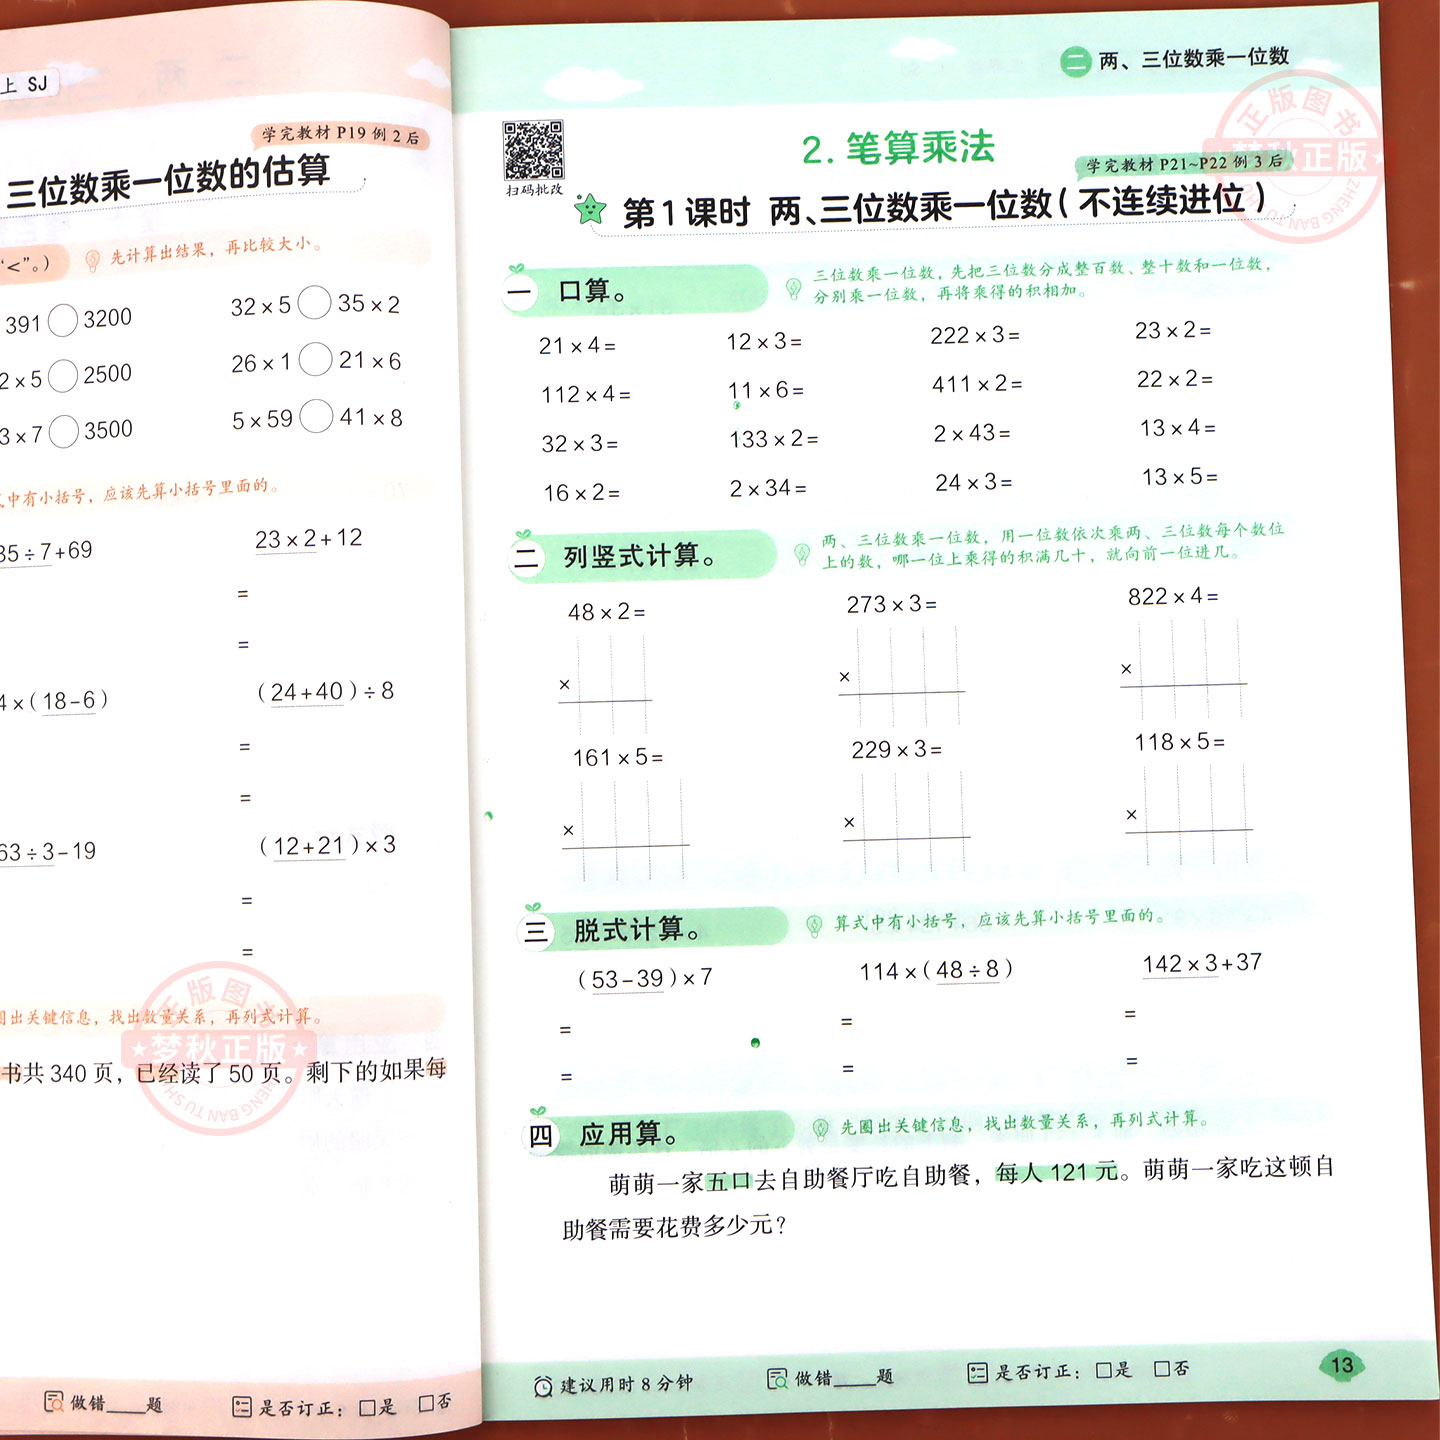 上 SJ
学完教材 P19 例 2 后
三位数乘一位数的估算
“<”。)
先计算出结果，再比较大小。
391○3200
32×5○35×2
2×5○2500
26×1○21×6
3×7○3500
5×59○41×8
式中有小括号，应该先算小括号里面的。
35÷7+69
23×2+12
=
=
4×(18-6)
(24+40)÷8
=
=
63÷3-19
(12+21)×3
=
=
圈出关键信息，找出数量关系，再列式计算。
书共 340 页，已经读了 50 页。剩下的如果每
做错____题
是否订正：□是 □否
二 两、三位数乘一位数
扫码批改
2. 笔算乘法
学完教材 P21~P22 例 3 后
第 1 课时 两、三位数乘一位数(不连续进位)
一 口算。
三位数乘一位数，先把三位数分成整百数、整十数和一位数，
分别乘一位数，再将乘得的积相加。
21×4= 12×3= 222×3= 23×2=
112×4= 11×6= 411×2= 22×2=
32×3= 133×2= 2×43= 13×4=
16×2= 2×34= 24×3= 13×5=
二 列竖式计算。
两、三位数乘一位数，用一位数依次乘两、三位数每个数位
上的数，哪一位上乘得的积满几十，就向前一位进几。
48×2= 273×3= 822×4=
× × ×
161×5= 229×3= 118×5=
× × ×
三 脱式计算。
算式中有小括号，应该先算小括号里面的。
(53-39)×7 114×(48÷8) 142×3+37
= = =
= = =
四 应用算。
先圈出关键信息，找出数量关系，再列式计算。
萌萌一家五口去自助餐厅吃自助餐，每人 121 元。萌萌一家吃这顿自
助餐需要花费多少元？
建议用时 8 分钟
做错____题
是否订正：□是 □否
13
正版图书
梦秋正版
ZHENG BAN TU SHU
正版图书
梦秋正版
ZHENG BAN TU SHU